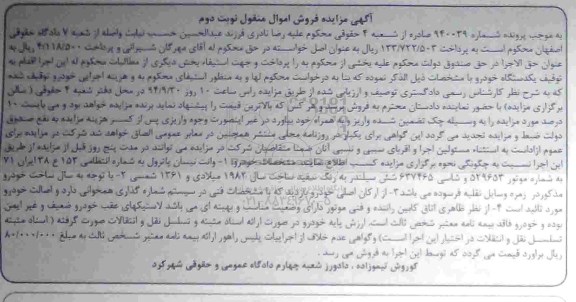 آگهی مزایده فروش اموال منقول نوبت دوم
به موجب پرونده شماره ۹۴۰۰۳۹ صادره از شعبه ۴ حقوقی محکوم علیه رضا نادری فرزند عبدالحسین حسب نیابت واصله از شعبه ۷ دادگاه حقوقی
اصفهان محکوم است به پرداخت ۱۳۳/۷۲۲/۵۰۳ ریال به عنوان اصل خواسته در حق محکوم له آقای مهرگان شیروانی و پرداخت ۴/۱۱۸/۵۰۰ ریال به
عنوان حق الاجرا در حق صندوق دولت محکوم علیه بخشی از محکوم به را پرداخت و جهت استیفاء بخش دیگری از مطالبات محکوم له این اجرا اقدام به
توقیف یکدستگاه خودرو با مشخصات ذیل الذکر نموده که بنا به درخواست محکوم لها و به منظور استیفای محکوم به و هزینه اجرایی خودرو توقیف شده
که به شرح نظر کارشناس رسمی دادگستری توصیف و ارزیابی شده از طریق مزایده راس ساعت ۱۰ روز ۹۴/۹/۳۰ در محل دفتر شعبه ۴ حقوقی (سالن
برگزاری مزایده) با حضور نماینده دادستان محترم به فروش برسد و هر کس که بالاترین قیمت را پیشنهاد نماید برنده مزایده خواهد بود و می بایست ۱۰
درصد مورد مزایده را به وسیله چک تضمین شده واریز و به همراه خود بیاورد در غیر اینصورت وجوه واریزی پس از کسر هزینه مزایده به نفع صندوق
دولت ضبط و مزایده تجدید می گردد این گواهی برای یکبار در روزنامه محلی منتشر همچنین در معابر عمومی الصاق خواهد شد شرکت در مزایده برای
عموم آزاداست به استثناء مسئولین اجرا و اقربای سببی و نسبی آنان ضمنا متقاضیان شرکت در مزایده می توانند در مدت پنج روز قبل از مزایده از طریق
این اجرا نسبت به چگونگی نحوه برگزاری مزایده کسب اطلاع نمایند مشخصات خودرو: ۱- وانت نیسان پاترول به شماره انتظامی ۱۵۳ ج ۳۸ ایران ۷۱
به شماره موتور ۵۲۹۶۵۳ و شاسی ۶۳۷۴۶۵ شش سیلندر به رنگ سفید ساخت سال ۱۹۸۲ میلادی و ۱۳۶۱ شمسی ۲- با توجه به سال ساخت خودرو
مذکور در زمره وسایل نقلیه فرسوده می باشد ۳- از ارکان اصلی خودرو بازدید که با مشخصات فنی در سیستم شماره گذاری همخوانی دارد و اصالت خودرو
مورد تائید است ۴- از نظر ظاهری اتاق کابین راننده و فنی موتور دارای وضعیت مناسب و بهینه ای می باشد لاستیکهای عقب خودرو ضعیف و غیر ایمن
بوده و خودرو فاقد بیمه نامه معتبر شخص ثالث است. ارزش پایه خودرو در صورت ارائه اسناد مثبته و تسلسل نقل و انتقالات صورت گرفته (اسناد مثبته
تسلسل نقل و انتقلات در اختیار این اجرا است) وگواهی عدم خلاف از اجراییات پلیس راهور ارائه بیمه نامه معتبر شخص ثالث به مبلغ ۸۰/۰۰۰/۰۰۰
ریال برآورد قیمت می گردد که توسط این اجرا به فروش می رسد.
کوروش تیموزاده - دادورز شعبه چهارم دادگاه عمومی و حقوقی شهرکرد